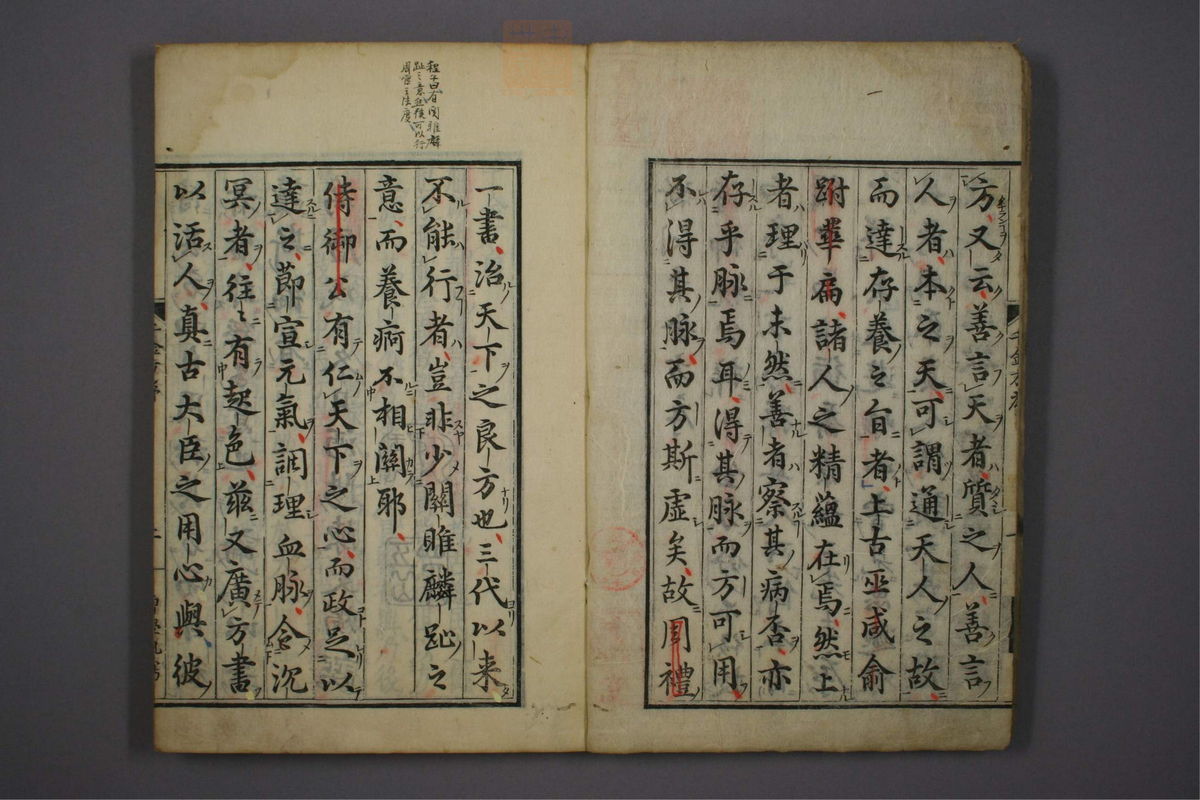 方又云善言天者質之人善言
人者本之天可謂通天人之故
而達存養之旨者上古巫咸俞
跗輩扁諸人之精蘊在焉然上
者理于未然善者察其病否亦
存乎脉焉耳得其脉而方可用
不得其脉而方斯虛矣故周禮
一書治天下之良方也三代以来
不能行者豈非少關雎麟趾之
意而養痾不相關耶
侍御公有仁天下之心而政足以
達之莭宣元氣調理血脉令沉
冥者往〻有起色茲又廣方書
以活人真古大臣之用心與彼
程子曰有関雎麟
趾之意然後可以行
周官之法度